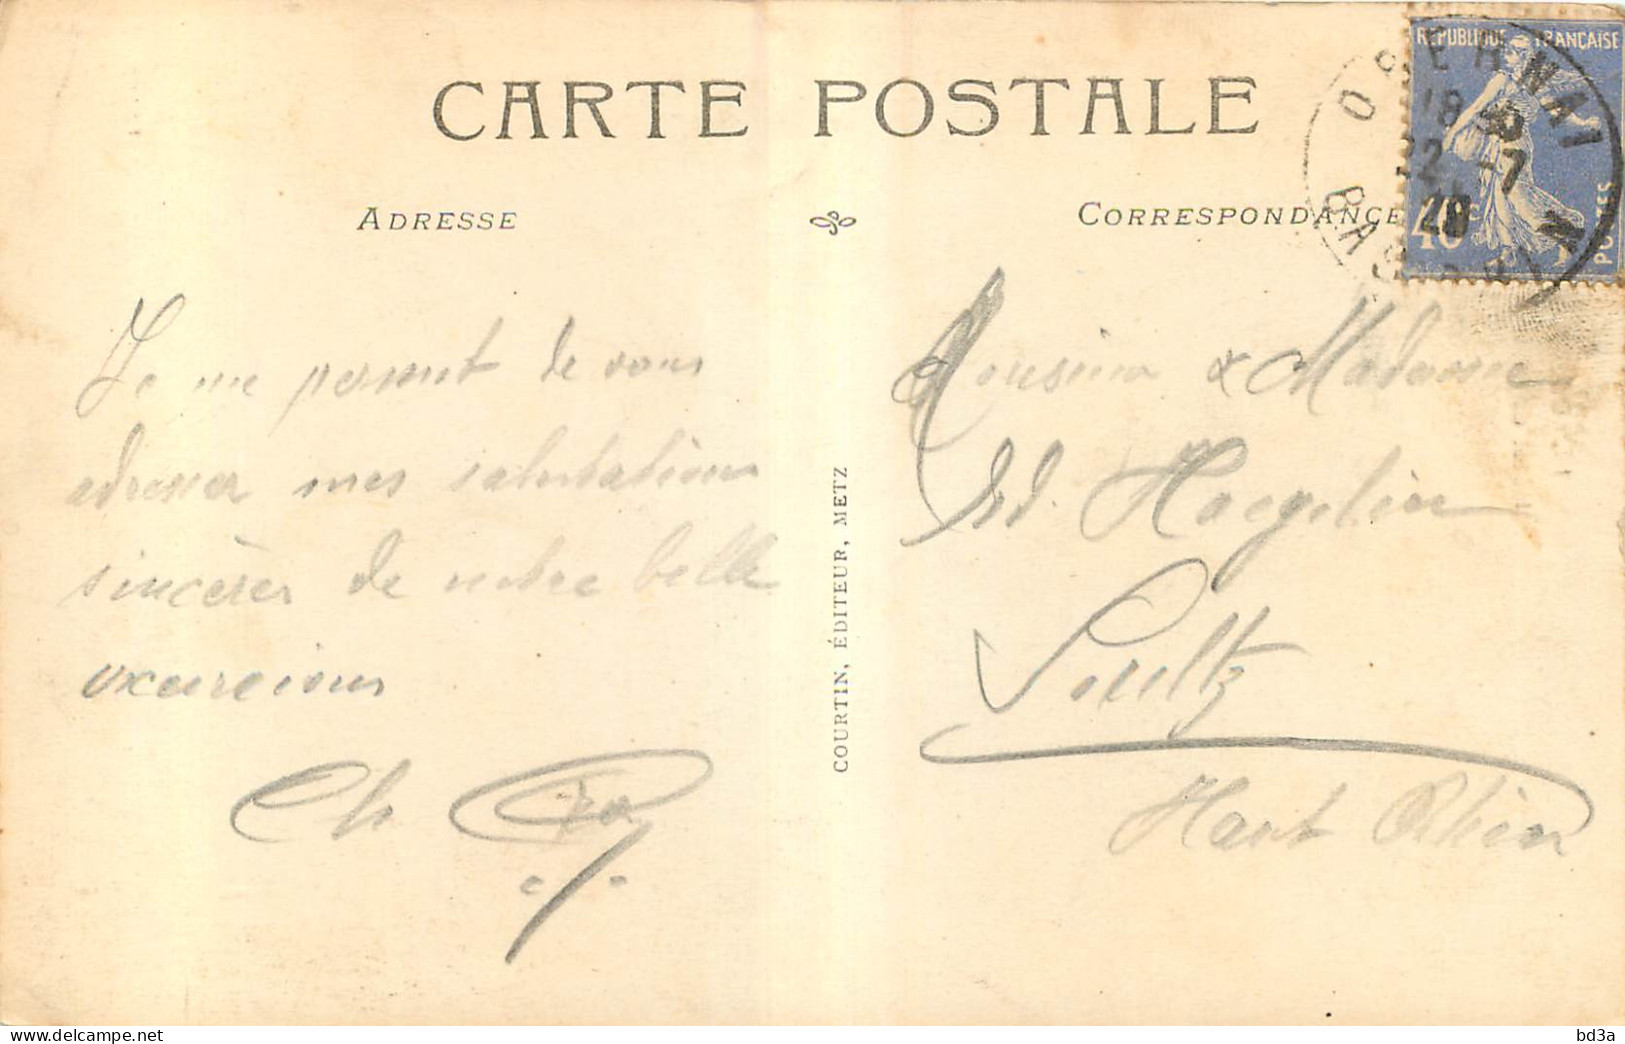 CARTE POSTALE
ADRESSE
CORRESPONDANCE
REPUBLIQUE FRANÇAISE
40c
POSTES
OBERNAI
18 30
22 -7
28
BAS-RHIN
Je me permet de vous
adresser mes salutations
sincères de notre belle
excursions
Ch
COURTIN, ÉDITEUR, METZ
Monsieur & Madame
Ed. Haegelin
Soultz
Haut Rhin
bd3a